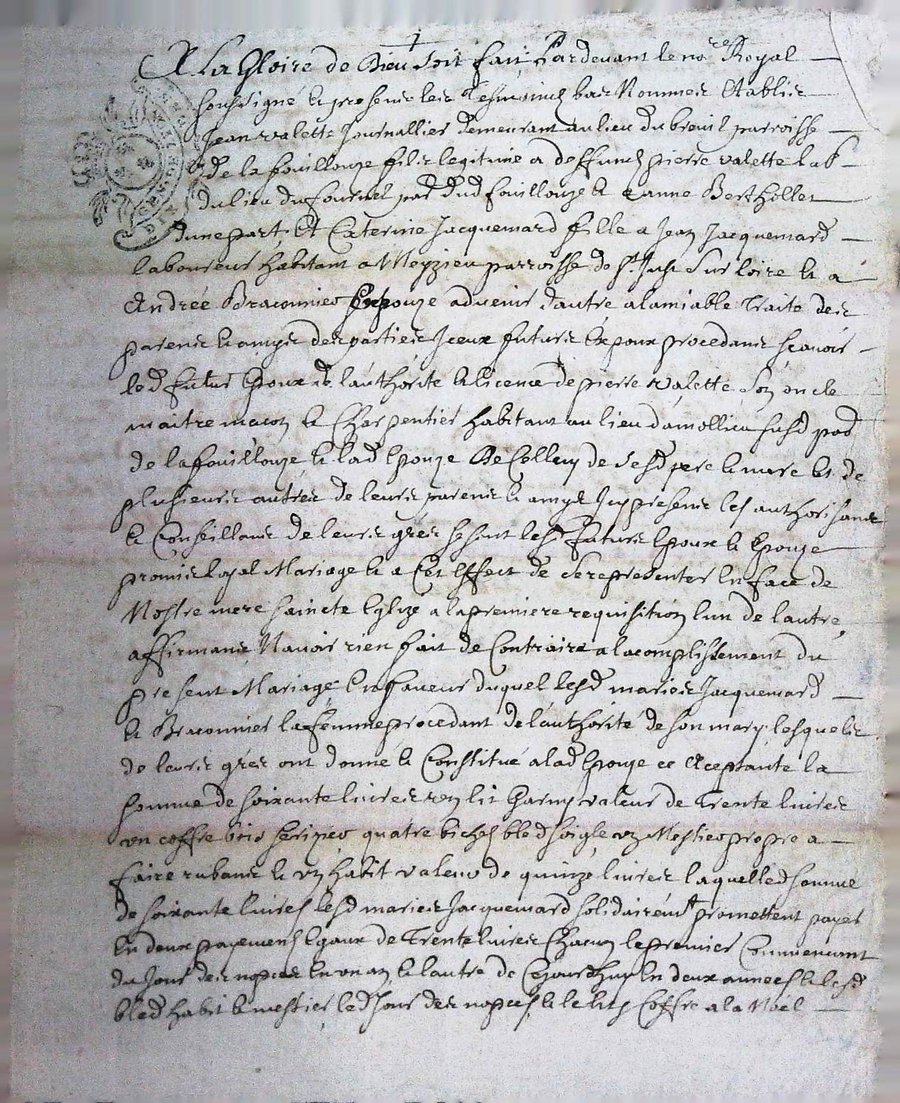 A La Gloire de Dieu soit fait Pardevant le no.re Royal
soussigné et presens les tesmoins bas Nommés Establis
Jean valette Journallier demeurant au lieu du breuil parroisse
de la fouillouze filz legitime a deffunct pierre valette lab.
du lieu du par. dud fouillouze et Anne Berthollet
dune part, Et Caterine Jacquemard fille a Jean Jacquemard
laboureur habitant a Meyzieu parroisse de St Just sur loire et a
Andrée Braconnier Expouze advenir dautre a lamiable Traité des
parens et amys des parties Iceux futurs Expoux procedans scavoir
led futur Epoux de lauthorité et licence de pierre valette son oncle
maitre macon et Charpentier habitant au lieu damollieu susd par
de la fouillouze et lad Epouze de sesd pere et mere et de
plusieurs autres de leurs parens et amys Icy presens les authorisans
et Conseillans de leurs grés se sont lesd futurs Epoux et Epouze
promis loyal Mariage et a Cet Effect de se representer En face de
Nostre mere saincte Eglize a la premiere requisition lun de lautre,
affirmans Navoir rien fait de Contraire a lacomplissement du
present Mariage En faveur duquel lesd mariés Jacquemard
et Braconnier la femme procedant de lauthorité de son mary lesquels
de leurs grés ont donné et Constitué a lad Epouze ce Aceptante la
somme de soixante livres un lit Garny valeur de Trente livres
un coffre bois serizier quatre bichets bled soigle un Mestier propre a
faire rubans et un habit valeur de quinze livres laquelled somme
de soixante livres lesd mariés Jacquemard solidairemt promettent payer
En deux payemens Egaux de Trente livres Chacun le premier
du Jour des nopces En un an et lautre de Cejourdhuy En deux années et lesd
bled habit et mestier led Jour des nopces, et le lit Coffre a la Noel